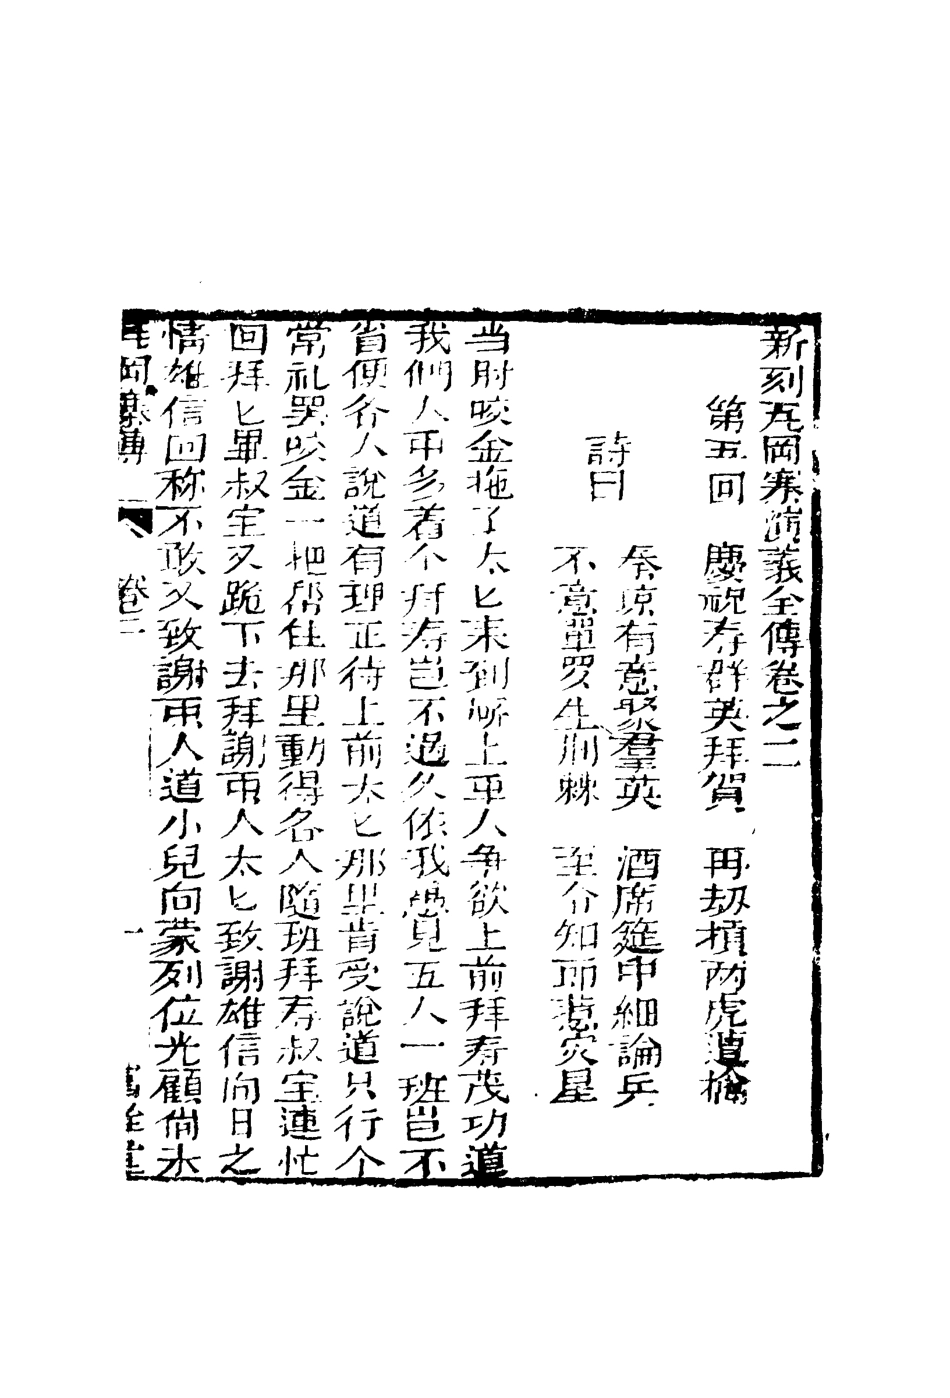 新刻瓦岡寨演義全傳卷之二
第五回　慶祝寿群英拜賀　再劫槓両虎遭擒
詩曰
秦瓊有意聚羣英　酒席筵中細論兵
不意單罗生荆棘　至今知而惹灾星
当时咬金拖了太匕来到厛上甬人争欲上前拜寿茂功道
我們人甬多着个拜寿岂不過久依我愚見五人一班岂不
省便各人說道有理正待上前太匕那里肯受說道只行个
常礼罢咬金一把帮住那里動得名人隨班拜寿叔宝連忙
回拜匕畢叔宝又跪下去拜謝甬人太匕致謝雄信向日之
情雄信回称不敢又致謝甬人道小兒向蒙列位光顧尚未
瓦岡寨傳　卷二　一